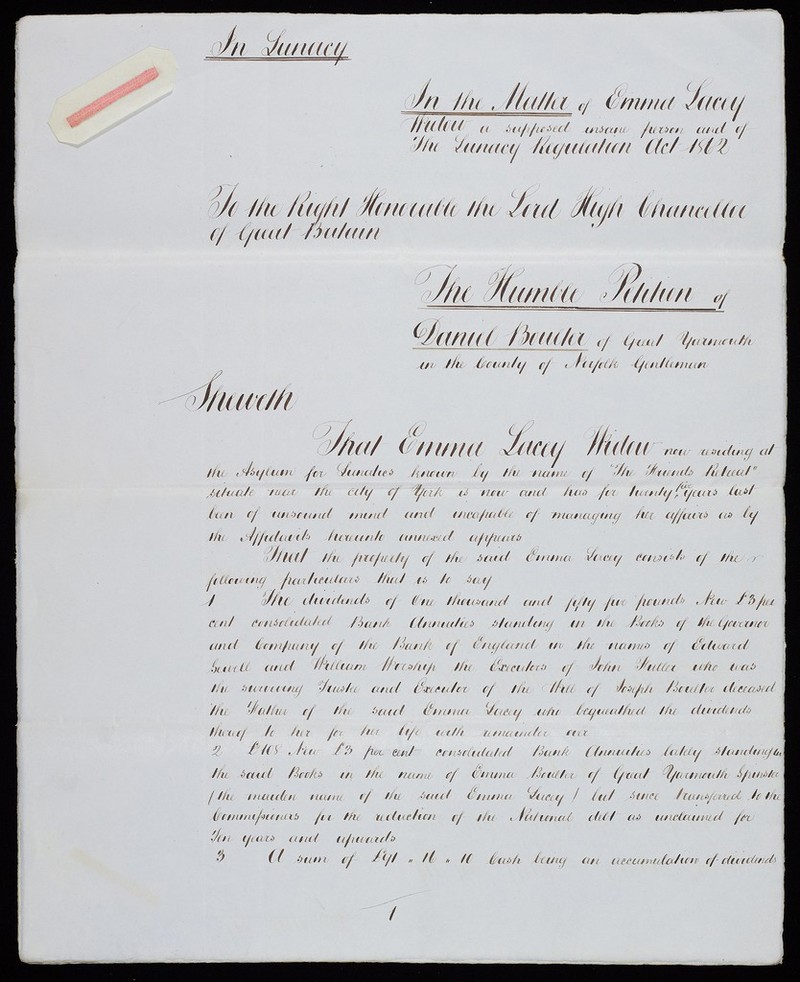 In Lunacy
In the Matter of Emma Lacey
Widow a supposed insane person and of
The Lunacy Regulation Act 1862
To the Right Honorable the Lord High Chancellor
of Great Britain
The Humble Petition of
Daniel Boulter of Great Yarmouth
in the County of Norfolk Gentleman
Sheweth
That Emma Lacey Widow now residing at
the Asylum for Lunatics known by the name of "The Friends Retreat"
situate near the city of York is now and has for twenty five years last
been of unsound mind and incapable of managing her affairs as by
the Affidavits hereunto annexed appears
That the property of the said Emma Lacey consists of the
following particulars that is to say
1 The dividends of One thousand and fifty five pounds New £3 per
cent consolidated Bank Annuities standing in the Books of the Governor
and Company of the Bank of England in the names of Edward
Sewell and William Worship the Executors of John Fuller who was
the surviving Trustee and Executor of the Will of Joseph Boulter deceased
the Father of the said Emma Lacey who bequeathed the dividends
thereof to her for her life with remainder over
2 £108 New £3 per cent consolidated Bank Annuities lately standing in
the said Books in the name of Emma Boulter of Great Yarmouth Spinster
(the maiden name of the said Emma Lacey) but since transferred to the
Commissioners for the reduction of the National debt as unclaimed for
Ten years and upwards
3 A sum of 16 . 10 Cash being an accumulation of dividends
1